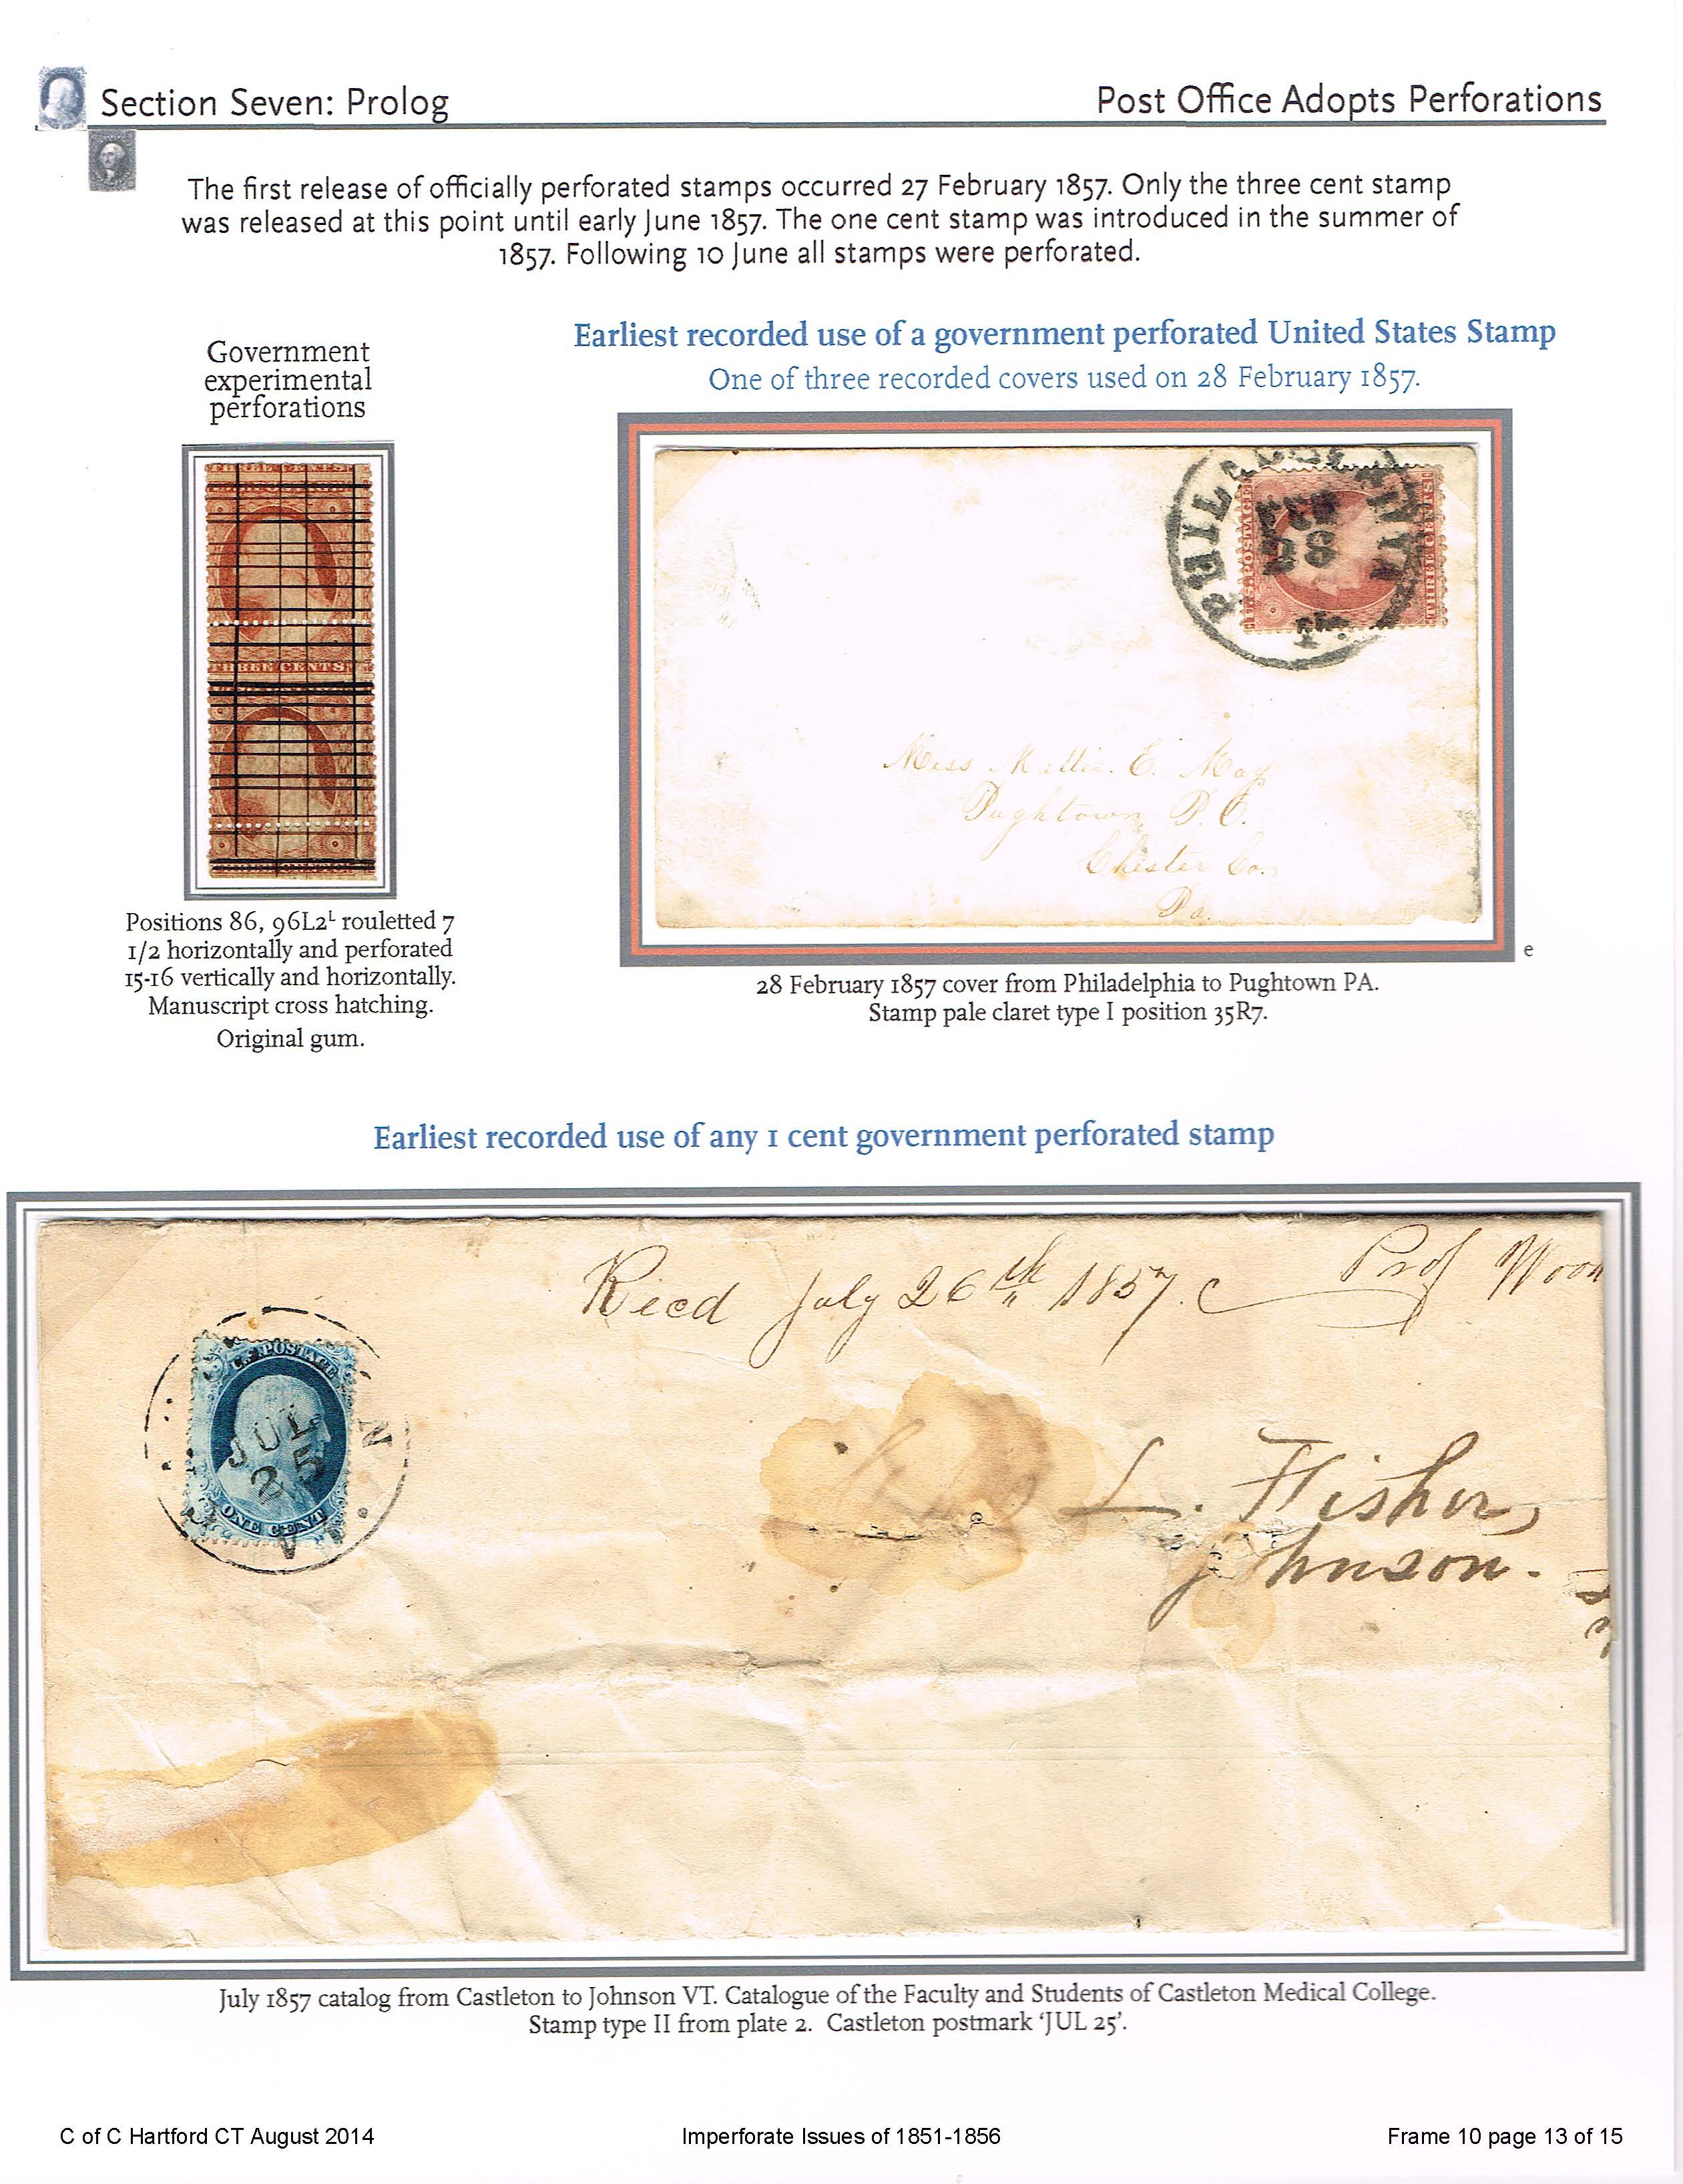 Section Seven: Prolog
Post Office Adopts Perforations
The first release of officially perforated stamps occurred 27 February 1857. Only the three cent stamp
was released at this point until early June 1857. The one cent stamp was introduced in the summer of
1857. Following 10 June all stamps were perforated.
Government
experimental
perforations
THREE CENTS
Positions 86, 96L2ᴸ rouletted 7
1/2 horizontally and perforated
15-16 vertically and horizontally.
Manuscript cross hatching.
Original gum.
Earliest recorded use of a government perforated United States Stamp
One of three recorded covers used on 28 February 1857.
PHILADELPHIA
FEB
28
U.S. POSTAGE
THREE CENTS
Miss Mellie. E. May
Pughtown P. O.
Chester Co.
Pa.
e
28 February 1857 cover from Philadelphia to Pughtown PA.
Stamp pale claret type I position 35R7.
Earliest recorded use of any 1 cent government perforated stamp
Recd July 26th 1857. Prof Woo
U.S. POSTAGE
JUL
25
ONE CENT
N
L. Fisher,
Johnson.
July 1857 catalog from Castleton to Johnson VT. Catalogue of the Faculty and Students of Castleton Medical College.
Stamp type II from plate 2. Castleton postmark ‘JUL 25’.
C of C Hartford CT August 2014
Imperforate Issues of 1851-1856
Frame 10 page 13 of 15